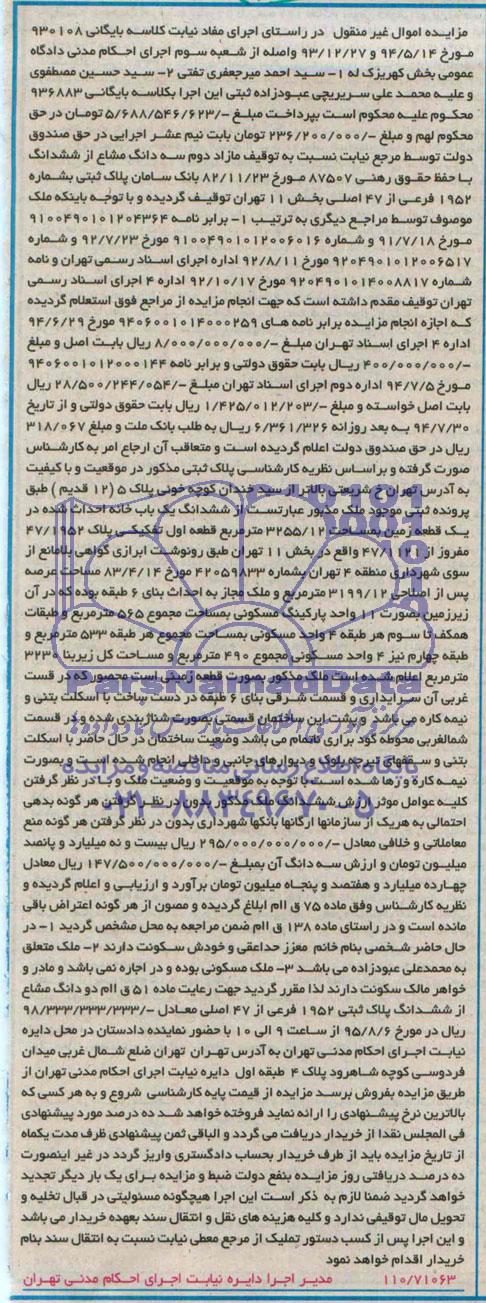 مزایده اموال غیر منقول در راستای اجرای مفاد نیابت کلاسه بایگانی ۹۳۰۱۰۸
مورخ ۹۴/۵/۱۴ و ۹۳/۱۲/۲۷ واصله از شعبه سوم اجرای احکام مدنی دادگاه
عمومی بخش کهریزک له ۱- سید احمد میرجعفری تفتی ۲- سید حسین مصطفوی
و علیه محمد علی سریریچی عبودزاده ثبتی این اجرا بکلاسه بایگانی ۹۳۶۸۸۳
محکوم علیه محکوم است بپرداخت مبلغ -/۵/۶۸۸/۵۴۶/۶۲۳ تومان در حق
محکوم لهم و مبلغ -/۲۳۶/۲۰۰/۰۰۰ تومان بابت نیم عشر اجرایی در حق صندوق
دولت توسط مرجع نیابت نسبت به توقیف مازاد دوم سه دانگ مشاع از ششدانگ
با حفظ حقوق رهنی ۸۷۵۰۷ مورخ ۸۲/۱۱/۲۳ بانک سامان پلاک ثبتی بشماره
۱۹۵۲ فرعی از ۴۷ اصلی بخش ۱۱ تهران توقیف گردیده و با توجه باینکه ملک
موصوف توسط مراجع دیگری به ترتیب ۱- برابر نامه ۹۱۰۰۴۹۰۱۰۱۲۰۴۳۶۴
مورخ ۹۱/۷/۱۸ و شماره ۹۱۰۰۴۹۰۱۰۱۲۰۰۶۰۱۶ مورخ ۹۲/۷/۲۳ و شماره
۹۲۰۴۹۰۱۰۱۲۰۰۶۵۱۷ مورخ ۹۲/۸/۱۱ اداره اجرای اسناد رسمی تهران و نامه
شماره ۹۲۰۴۹۰۱۰۱۴۰۰۸۸۱۷ مورخ ۹۲/۱۰/۱۷ اداره ۴ اجرای اسناد رسمی
تهران توقیف مقدم داشته است که جهت انجام مزایده از مراجع فوق استعلام گردیده
که اجازه انجام مزایده برابر نامه های ۹۴۰۶۰۰۱۰۱۴۰۰۰۲۵۹ مورخ ۹۴/۶/۲۹
اداره ۴ اجرای اسناد تهران مبلغ -/۸/۰۰۰/۰۰۰/۰۰۰ ریال بابت اصل و مبلغ
-/۴۰۰/۰۰۰/۰۰۰ ریال بابت حقوق دولتی و برابر نامه ۹۴۰۶۰۰۱۰۱۲۰۰۰۱۴۴
مورخ ۹۴/۷/۵ اداره دوم اجرای اسناد تهران مبلغ -/۲۸/۵۰۰/۲۴۴/۰۵۴ ریال
بابت اصل خواسته و مبلغ -/۱/۴۲۵/۰۱۲/۲۰۳ ریال بابت حقوق دولتی و از تاریخ
۹۴/۷/۳۰ به بعد روزانه ۶/۳۶۱/۳۲۶ ریال به طلب بانک ملت و مبلغ ۳۱۸/۰۶۷
ریال در حق صندوق دولت اعلام گردیده است و متعاقب آن ارجاع امر به کارشناس
صورت گرفته و براساس نظریه کارشناسی پلاک ثبتی مذکور در موقعیت و با کیفیت
به آدرس تهران خ شریعتی بالاتر از سید خندان کوچه خونی پلاک ۵ (۱۲ قدیم) طبق
پرونده ثبتی موجود ملک مذبور عبارتست از ششدانگ یک باب خانه احداث شده در
یک قطعه زمین بمساحت ۳۲۵۵/۱۲ مترمربع قطعه اول تفکیکی پلاک ۴۷/۱۹۵۲
مفروز از ۴۷/۱۱۲۱ واقع در بخش ۱۱ تهران طبق رونوشت ابرازی گواهی بلامانع از
سوی شهرداری منطقه ۴ تهران بشماره ۴۲۰۵۹۸۳۳ مورخ ۸۳/۴/۱۴ مساحت عرصه
پس از اصلاحی ۳۱۹۹/۱۲ مترمربع و ملک مجاز به احداث بنای ۶ طبقه بوده که در آن
زیرزمین بصورت ۱۱ واحد پارکینگ مسکونی بمساحت مجموع ۵۶۵ مترمربع و طبقات
همکف تا سوم هر طبقه ۴ واحد مسکونی بمساحت مجموع هر طبقه ۵۳۳ مترمربع و
طبقه چهارم نیز ۴ واحد مسکونی مجموع ۴۹۰ مترمربع و مساحت کل زیربنا ۳۲۳۰
مترمربع اعلام شده است ملک مذکور بصورت قطعه زمینی است محصور که در قست
غربی آن سرایداری و قسمت شرقی بنای ۶ طبقه در دست ساخت با اسکلت بتنی و
نیمه کاره می باشد و پشت این ساختمان قسمتی بصورت شناژبندی شده و در قسمت
شمالغربی محوطه گود براری ناتمام می باشد وضعیت ساختمان در حال حاضر با اسکلت
بتنی و سقفهای تیرچه بلوک و دیوارهای جانبی و داخلی انجام شده است و بصورت
نیمه کاره ورها شده است با توجه به موقعیت و وضعیت ملک و با در نظر گرفتن
کلیه عوامل موثر ارزش ششدانگ ملک مذکور بدون در نظر گرفتن هر گونه بدهی
احتمالی به هریک از سازمانها ارگانها بانکها شهرداری بدون در نظر گرفتن هر گونه منع
معاملاتی و خلافی معادل -/۲۹۵/۰۰۰/۰۰۰/۰۰۰ ریال بیست و نه میلیارد و پانصد
میلیون تومان و ارزش سه دانگ آن بمبلغ -/۱۴۷/۵۰۰/۰۰۰/۰۰۰ ریال معادل
چهارده میلیارد و هفتصد و پنجاه میلیون تومان برآورد و ارزیابی و اعلام گردیده و
نظریه کارشناس وفق ماده ۷۵ ق اام ابلاغ گردیده و مصون از هر گونه اعتراض باقی
مانده است و در راستای ماده ۱۳۸ ق اام ضمن مراجعه به محل مشخص گردید ۱- در
حال حاضر شخصی بنام خانم معزز حداعقی و خودش سکونت دارند ۲- ملک متعلق
به محمدعلی عبودزاده می باشد ۳- ملک مسکونی بوده و در اجاره نمی باشد و مادر و
خواهر مالک سکونت دارند لذا مقرر گردید جهت رعایت ماده ۵۱ ق اام دو دانگ مشاع
از ششدانگ پلاک ثبتی ۱۹۵۲ فرعی از ۴۷ اصلی معادل -/۹۸/۳۳۳/۳۳۳/۳۳۳
ریال در مورخ ۹۵/۸/۶ از ساعت ۹ الی ۱۰ با حضور نماینده دادستان در محل دایره
نیابت اجرای احکام مدنی تهران به آدرس تهران تهران ضلع شمال غربی میدان
فردوسی کوچه شاهرود پلاک ۴ طبقه اول دایره نیابت اجرای احکام مدنی تهران از
طریق مزایده بفروش برسد مزایده از قیمت پایه کارشناسی شروع و به هر کسی که
بالاترین نرخ پیشنهادی را ارائه نماید فروخته خواهد شد ده درصد مورد پیشنهادی
فی المجلس نقدا از خریدار دریافت می گردد و الباقی ثمن پیشنهادی ظرف مدت یکماه
از تاریخ مزایده باید از طرف خریدار بحساب دادگستری واریز گردد در غیر اینصورت
ده درصد دریافتی روز مزایده بنفع دولت ضبط و مزایده برای یک بار دیگر تجدید
خواهد گردید ضمنا لازم به ذکر است این اجرا هیچگونه مسئولیتی در قبال تخلیه و
تحویل مال توقیفی ندارد و کلیه هزینه های نقل و انتقال سند بعهده خریدار می باشد
و این اجرا پس از کسب دستور تملیک از مرجع معطی نیابت نسبت به انتقال سند بنام
خریدار اقدام خواهد نمود
۱۱۰/۷۱۰۶۳ مدیر اجرا دایره نیابت اجرای احکام مدنی تهران
ParsNamadData
۰۲۱-۸۸۳۴۹۶۷۰-۵